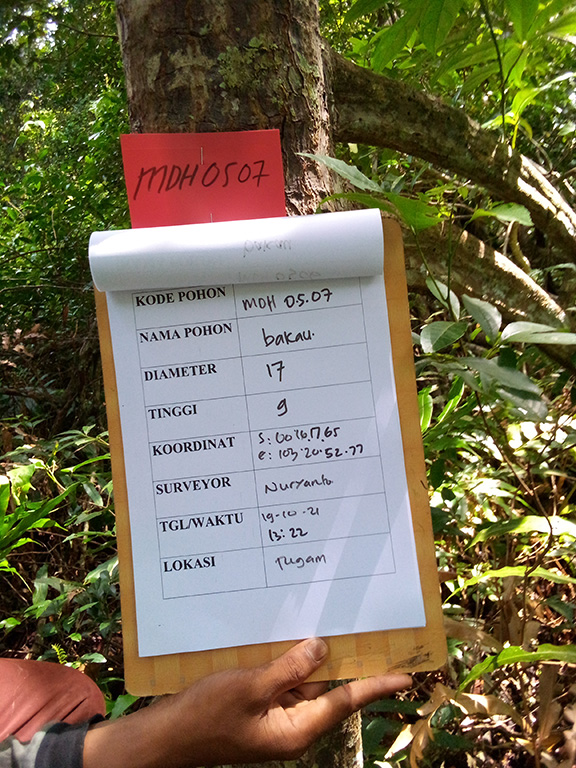 MDH 0507
KODE POHON MDH 05.07
NAMA POHON bakau.
DIAMETER 17
TINGGI 9
KOORDINAT
e: 103.20.52.77
SURVEYOR Nuryanto
TGL/WAKTU 19-10-21
13:22
LOKASI Tugam